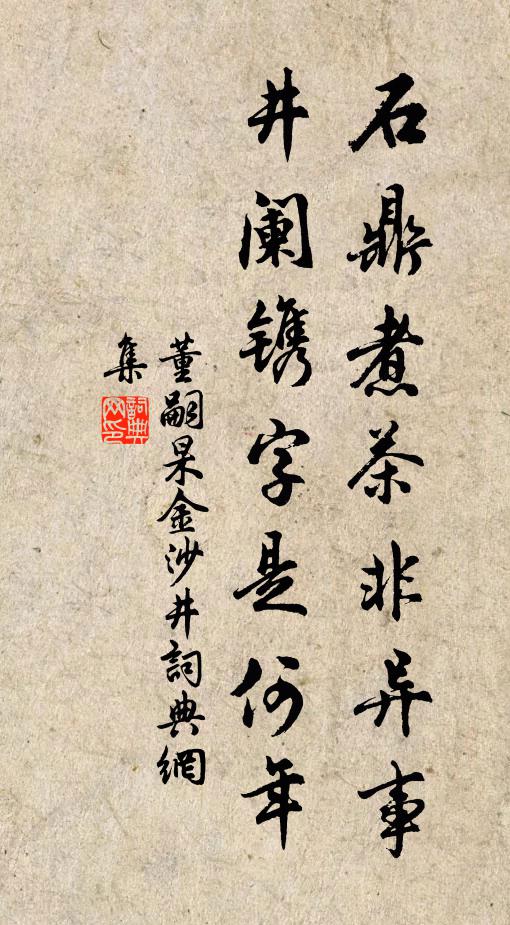 石鼎煮茶非异事
井阑镌字是何年
董嗣杲金沙井詞典網
集
詞典
网印